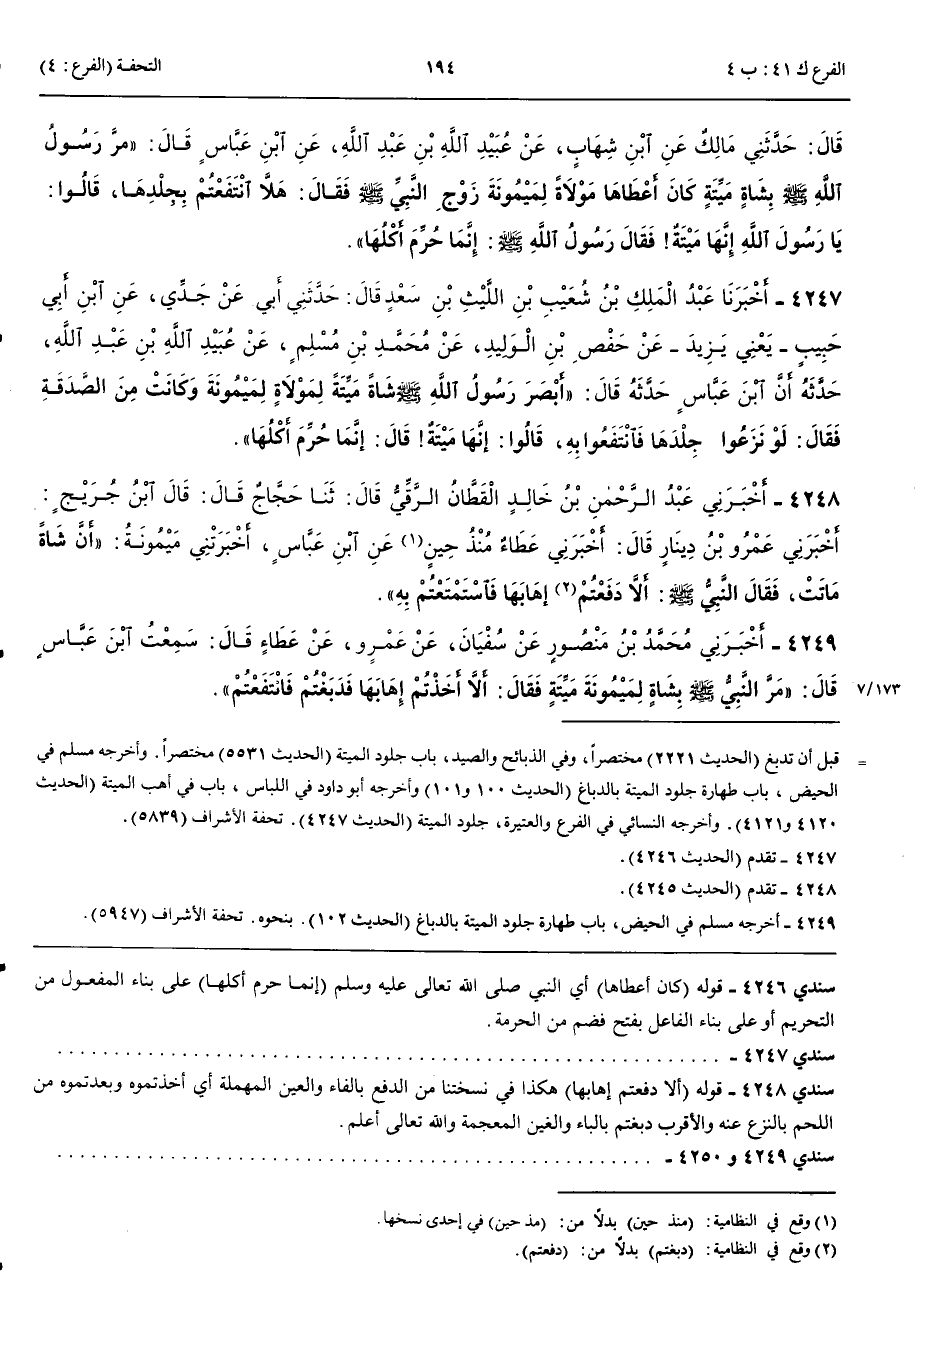 الفرع ك ٤١ : ب ٤
١٩٤
التحفة (الفرع : ٤)
قَالَ : حَدَّثَنِي مَالِكٌ عَنِ ٱبْنِ شِهَابٍ، عَنْ عُبَيْدِ ٱللَّهِ بْنِ عَبْدِ ٱللَّهِ، عَنِ ٱبْنِ عَبَّاسٍ قَـالَ : «مرَّ رَسُـولُ
ٱللَّهِ ﷺ بِشَاةٍ مَيِّتَةٍ كَانَ أَعْطَاهَا مَوْلَاةً لِمَيْمُونَةَ زَوْجِ النَّبِيِّ ﷺ فَقَـالَ : هَلَّا ٱنْتَفَعْتُمْ بِجِلْدِهَـا، قَالُـوا :
يَا رَسُولَ ٱللَّهِ إِنَّهَا مَيْتَةٌ ! فَقَالَ رَسُولُ ٱللَّهِ ﷺ : إِنَّمَا حُرِّمَ أَكْلُهَا» .
٤٢٤٧ ـ أَخْبَرَنَا عَبْدُ الْمَلِكِ بْنُ شُعَيْبِ بْنِ اللَّيْثِ بْنِ سَعْدٍ قَالَ : حَدَّثَنِي أَبي عَنْ جَـدِّي، عَنِ ٱبْنِ أَبِي
حَبِيبٍ ـ يَعْنِي يَـزِيدَ ـ عَنْ حَفْصِ بْنِ الْـوَلِيدِ، عَنْ مُحَمَّـدِ بْنِ مُسْلِمٍ ، عَنْ عُبَيْدِ ٱللَّهِ بْنِ عَبْـدِ ٱللَّهِ،
حَدَّثَهُ أَنَّ ٱبْنَ عَبَّاسٍ حَدَّثَهُ قَالَ : «أَبْصَرَ رَسُولُ ٱللَّهِ ﷺ شَاةً مَيِّتَةً لِمَوْلَاةٍ لِمَيْمُونَةَ وَكَانَتْ مِنَ الصَّدَقَـةِ
فَقَالَ : لَوْ نَزَعُوا جِلْدَهَا فَٱنْتَفَعُوا بِهِ، قَالُوا : إِنَّهَا مَيْتَةٌ ! قَالَ : إِنَّمَا حُرِّمَ أَكْلُهَا» .
٤٢٤٨ ـ أَخْبَـرَنِي عَبْدُ الـرَّحْمٰنِ بْنُ خَالِـدٍ الْقَطَّانُ الـرَّقِّيُّ قَالَ : ثَنَـا حَجَّاجٌ قَـالَ : قَالَ ٱبْنُ جُـرَيْـجٍ :
أَخْبَرَنِي عَمْرُو بْنُ دِينَارٍ قَالَ : أَخْبَرَنِي عَطَاءٌ مُنْذُ حِينٍ(١) عَنِ ٱبْنِ عَبَّاسٍ ، أَخْبَرَتْنِي مَيْمُونَـةُ : «أَنَّ شَاةً
مَاتَتْ، فَقَالَ النَّبِيُّ ﷺ : أَلَّا دَفَعْتُمْ(٢) إِهَابَهَا فَٱسْتَمْتَعْتُمْ بِهِ» .
٤٢٤٩ ـ أَخْبَـرَنِي مُحَمَّدُ بْنُ مَنْصُـورٍ عَنْ سُفْيَانَ، عَنْ عَمْـرٍو ، عَنْ عَطَاءٍ قَـالَ : سَمِعْتُ ٱبْنَ عَبَّـاسٍ
٧/١٧٣ قَالَ : «مَرَّ النَّبِيُّ ﷺ بِشَاةٍ لِمَيْمُونَةَ مَيِّتَةٍ فَقَالَ : أَلَّا أَخَذْتُمْ إِهَابَهَا فَدَبَغْتُمْ فَانْتَفَعْتُمْ» .
= قبل أن تدبغ (الحديث ٢٢٢١) مختصراً، وفي الذبائح والصيد، باب جلود الميتة (الحديث ٥٥٣١) مختصراً . وأخرجه مسلم في
الحيض ، باب طهارة جلود الميتة بالدباغ (الحديث ١٠٠ و١٠١) وأخرجه أبو داود في اللباس ، باب في أهب الميتة (الحديث
٤١٢٠ و٤١٢١). وأخرجه النسائي في الفرع والعتيرة، جلود الميتة (الحديث ٤٢٤٧). تحفة الأشراف (٥٨٣٩).
٤٢٤٧ ـ تقدم (الحديث ٤٢٤٦).
٤٢٤٨ ـ تقدم (الحديث ٤٢٤٥).
٤٢٤٩ ـ أخرجه مسلم في الحيض، باب طهارة جلود الميتة بالدباغ (الحديث ١٠٢). بنحوه. تحفة الأشراف (٥٩٤٧).
سندي ٤٢٤٦ ـ قوله (كان أعطاها) أي النبي صلى الله تعالى عليه وسلم (إنمـا حرم أكلهـا) على بناء المفعـول من
التحريم أو على بناء الفاعل بفتح فضم من الحرمة .
سندي ٤٢٤٧ ـ . . . . . . . . . . . . . . . . . . . . . . . . . . . . . . . . . . . . . . . .
سندي ٤٢٤٨ ـ قوله (ألا دفعتم إهابها) هكذا في نسختنا من الدفع بالفاء والعين المهملة أي أخذتموه وبعدتموه من
اللحم بالنزع عنه والأقرب دبغتم بالباء والغين المعجمة والله تعالى أعلم .
سندي ٤٢٤٩ و ٤٢٥٠ ـ . . . . . . . . . . . . . . . . . . . . . . . . . . . . . . . . . . . .
(١) وقع في النظامية : (منذ حين) بدلاً من : (مذ حين) في إحدى نسخها.
(٢) وقع في النظامية : (دبغتم) بدلاً من : (دفعتم).